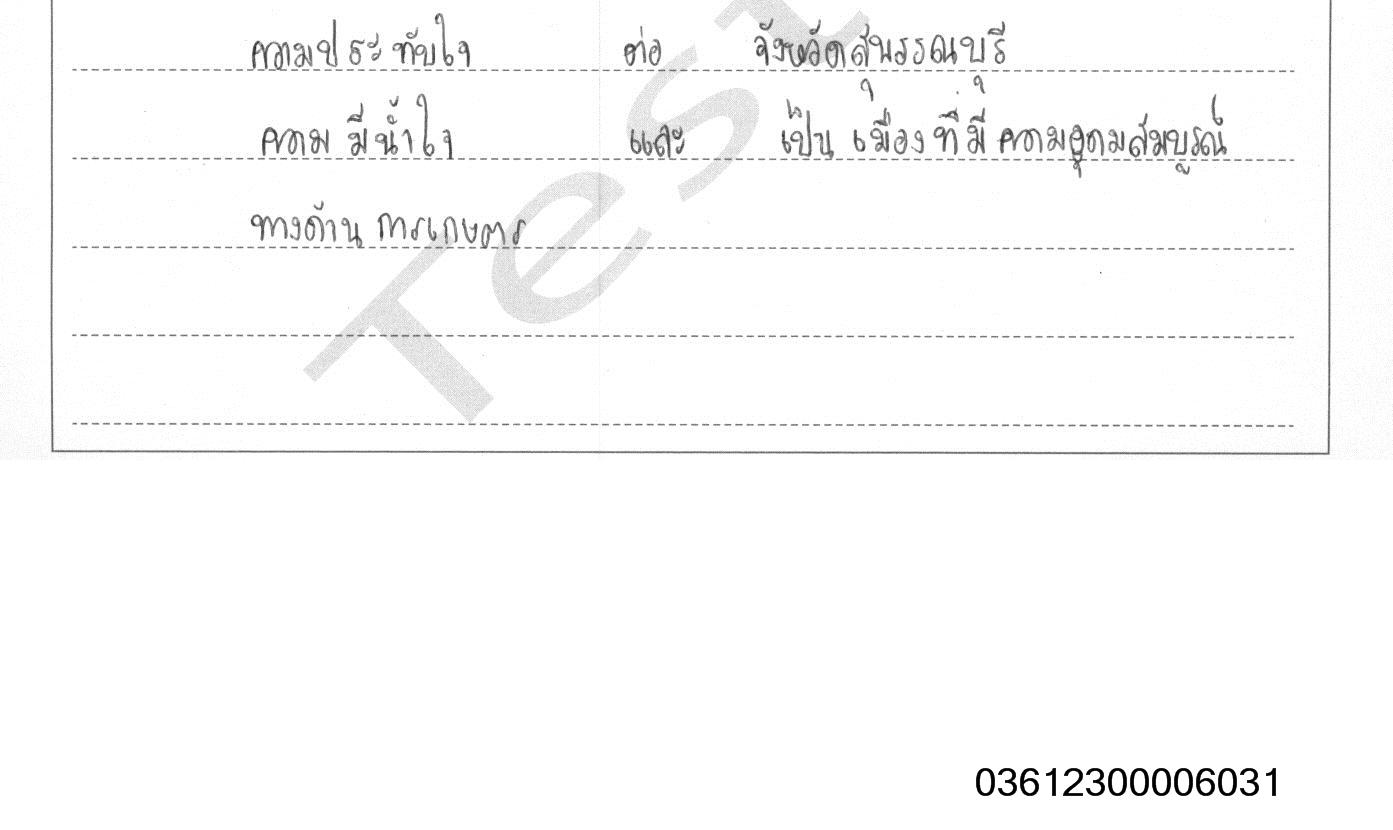 ความประทับใจ ต่อ จังหวัดสุพรรณบุรี
ความ มีน้ำใจ และ เป็น เมือง ที่ มี ความอุดมสมบูรณ์
ทางด้าน การเกษตร
Test
03612300006031